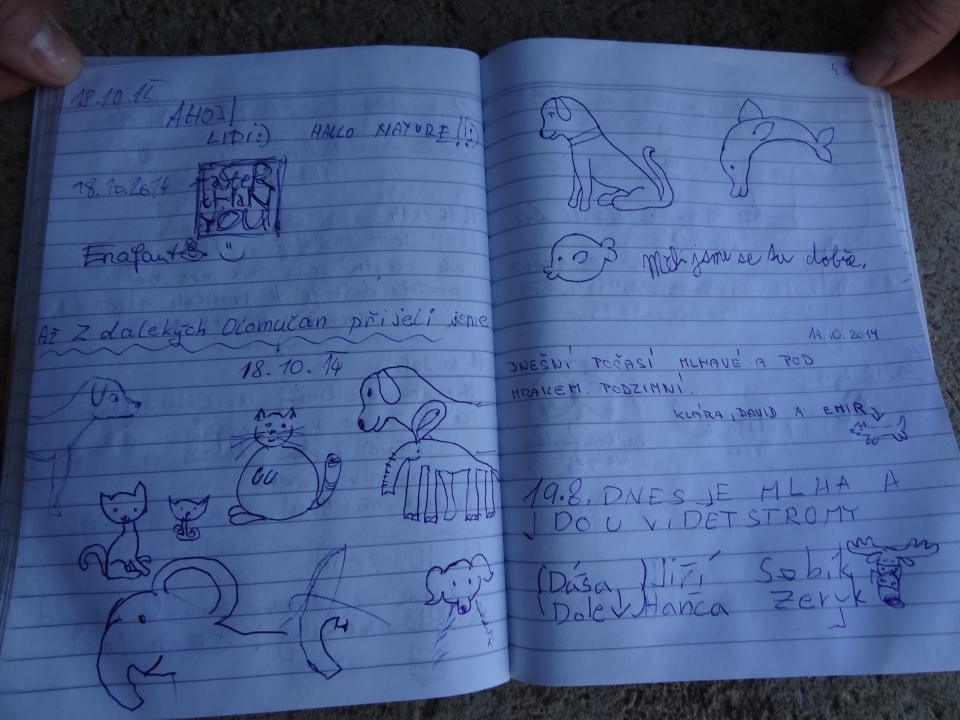 18.10.15
AHOJ
LIDI:)
HALLO NATURE!!:)
18.10.2014
YOU
Až z dalekých Olomučan přijeli jsme
18.10.14
Měli jsme se tu dobře.
19.10.2014
DNEŠNÍ POČASÍ MLHAVÉ A POD
MRAKEM. PODZIMNÍ.
KLÁRA, DAVID A EMIR
19.8. DNES JE MLHA A
JDOU VIDĚT STROMY
Dáša Jiří
Hanča
Sobík